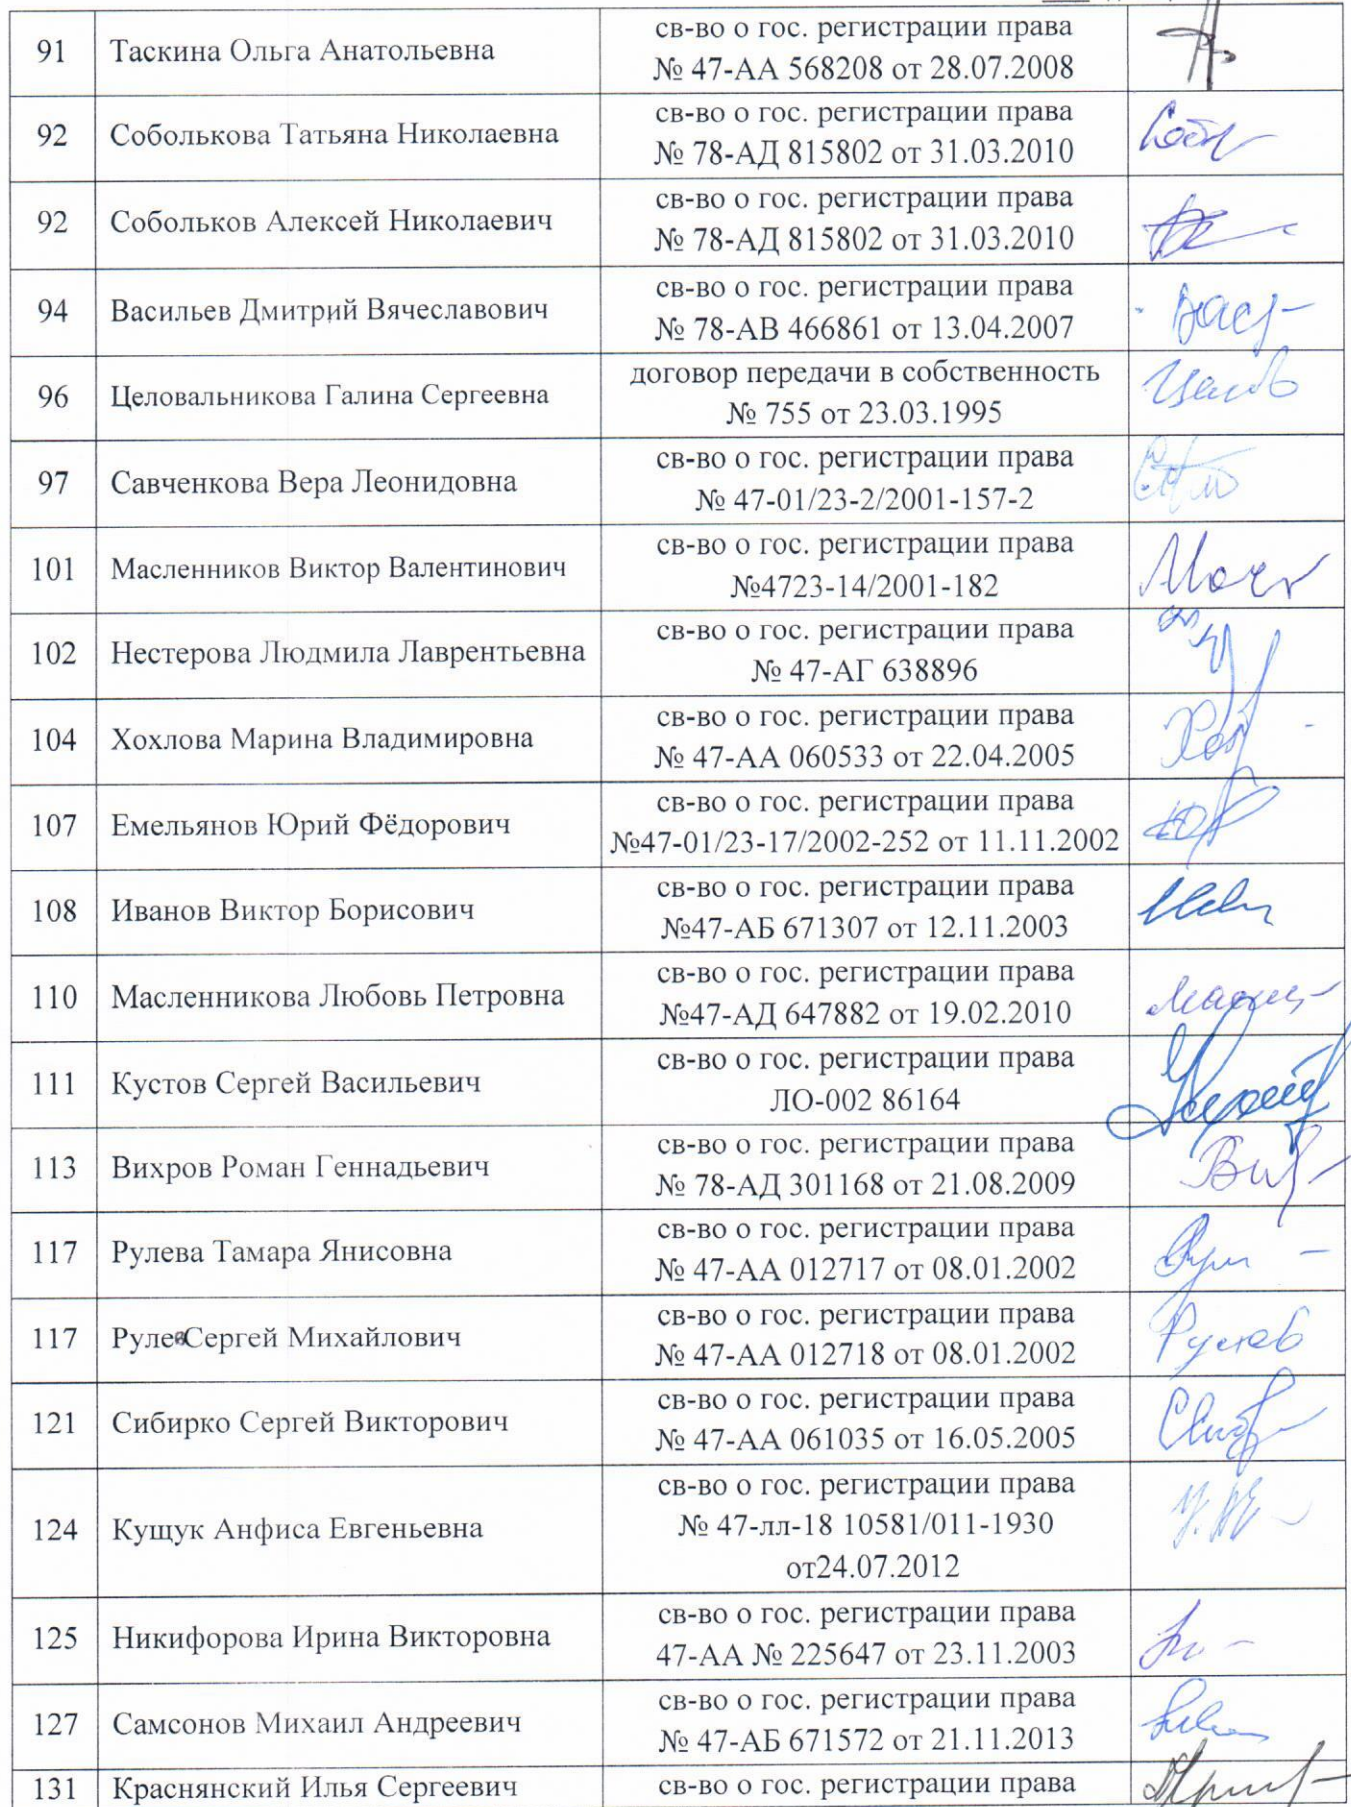 91 Таскина Ольга Анатольевна св-во о гос. регистрации права
№ 47-АА 568208 от 28.07.2008
92 Соболькова Татьяна Николаевна св-во о гос. регистрации права
№ 78-АД 815802 от 31.03.2010
92 Собольков Алексей Николаевич св-во о гос. регистрации права
№ 78-АД 815802 от 31.03.2010
94 Васильев Дмитрий Вячеславович св-во о гос. регистрации права
№ 78-АВ 466861 от 13.04.2007
96 Целовальникова Галина Сергеевна договор передачи в собственность
№ 755 от 23.03.1995
97 Савченкова Вера Леонидовна св-во о гос. регистрации права
№ 47-01/23-2/2001-157-2
101 Масленников Виктор Валентинович св-во о гос. регистрации права
№4723-14/2001-182
102 Нестерова Людмила Лаврентьевна св-во о гос. регистрации права
№ 47-АГ 638896
104 Хохлова Марина Владимировна св-во о гос. регистрации права
№ 47-АА 060533 от 22.04.2005
107 Емельянов Юрий Фёдорович св-во о гос. регистрации права
№47-01/23-17/2002-252 от 11.11.2002
108 Иванов Виктор Борисович св-во о гос. регистрации права
№47-АБ 671307 от 12.11.2003
110 Масленникова Любовь Петровна св-во о гос. регистрации права
№47-АД 647882 от 19.02.2010
111 Кустов Сергей Васильевич св-во о гос. регистрации права
ЛО-002 86164
113 Вихров Роман Геннадьевич св-во о гос. регистрации права
№ 78-АД 301168 от 21.08.2009
117 Рулева Тамара Янисовна св-во о гос. регистрации права
№ 47-АА 012717 от 08.01.2002
117 Рулев Сергей Михайлович св-во о гос. регистрации права
№ 47-АА 012718 от 08.01.2002 Рулев
121 Сибирко Сергей Викторович св-во о гос. регистрации права
№ 47-АА 061035 от 16.05.2005
124 Кущук Анфиса Евгеньевна св-во о гос. регистрации права
№ 47-лл-18 10581/011-1930
от24.07.2012
125 Никифорова Ирина Викторовна св-во о гос. регистрации права
47-АА № 225647 от 23.11.2003
127 Самсонов Михаил Андреевич св-во о гос. регистрации права
№ 47-АБ 671572 от 21.11.2013
131 Краснянский Илья Сергеевич св-во о гос. регистрации права